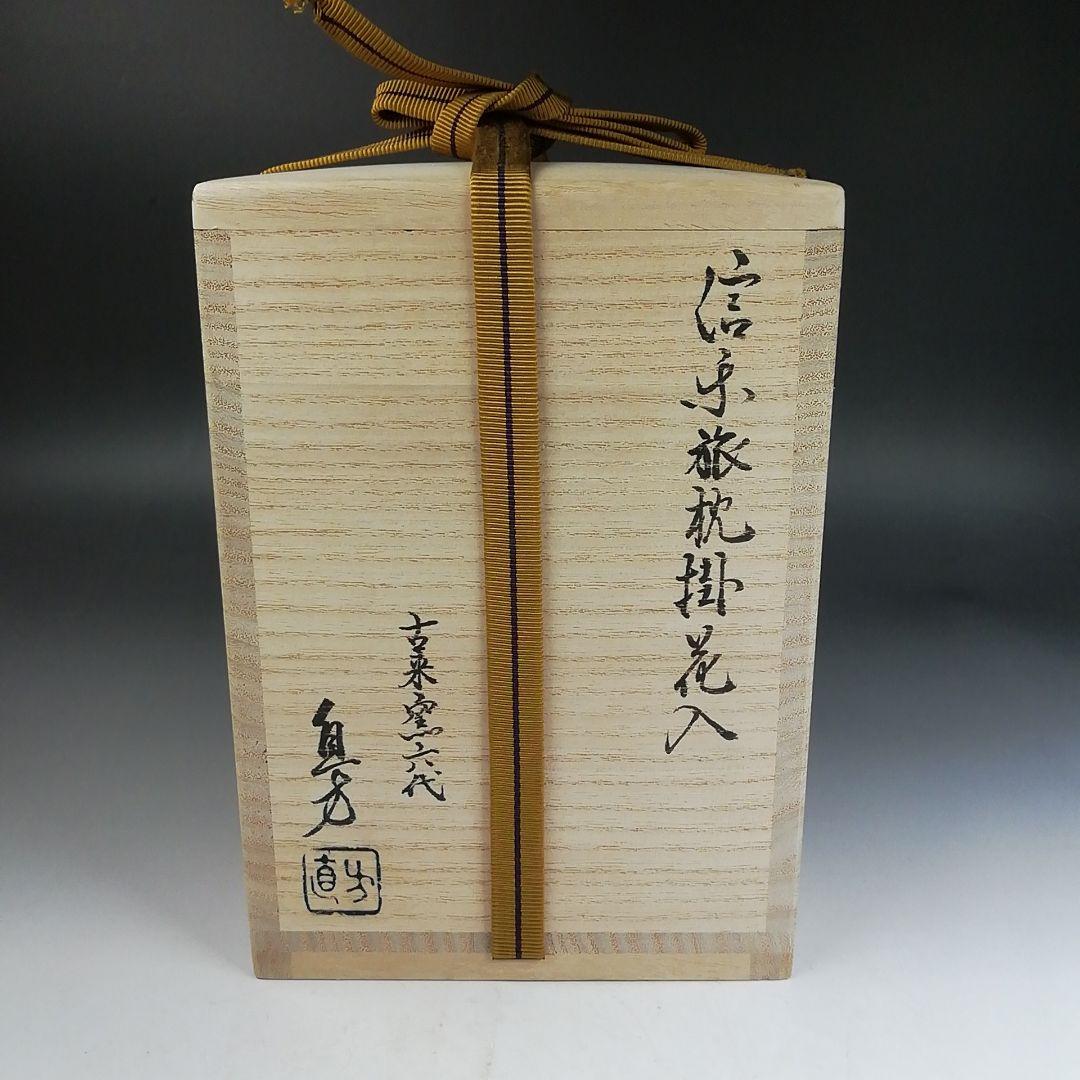 信楽旅枕掛花入
古楽窯六代
直方
直方